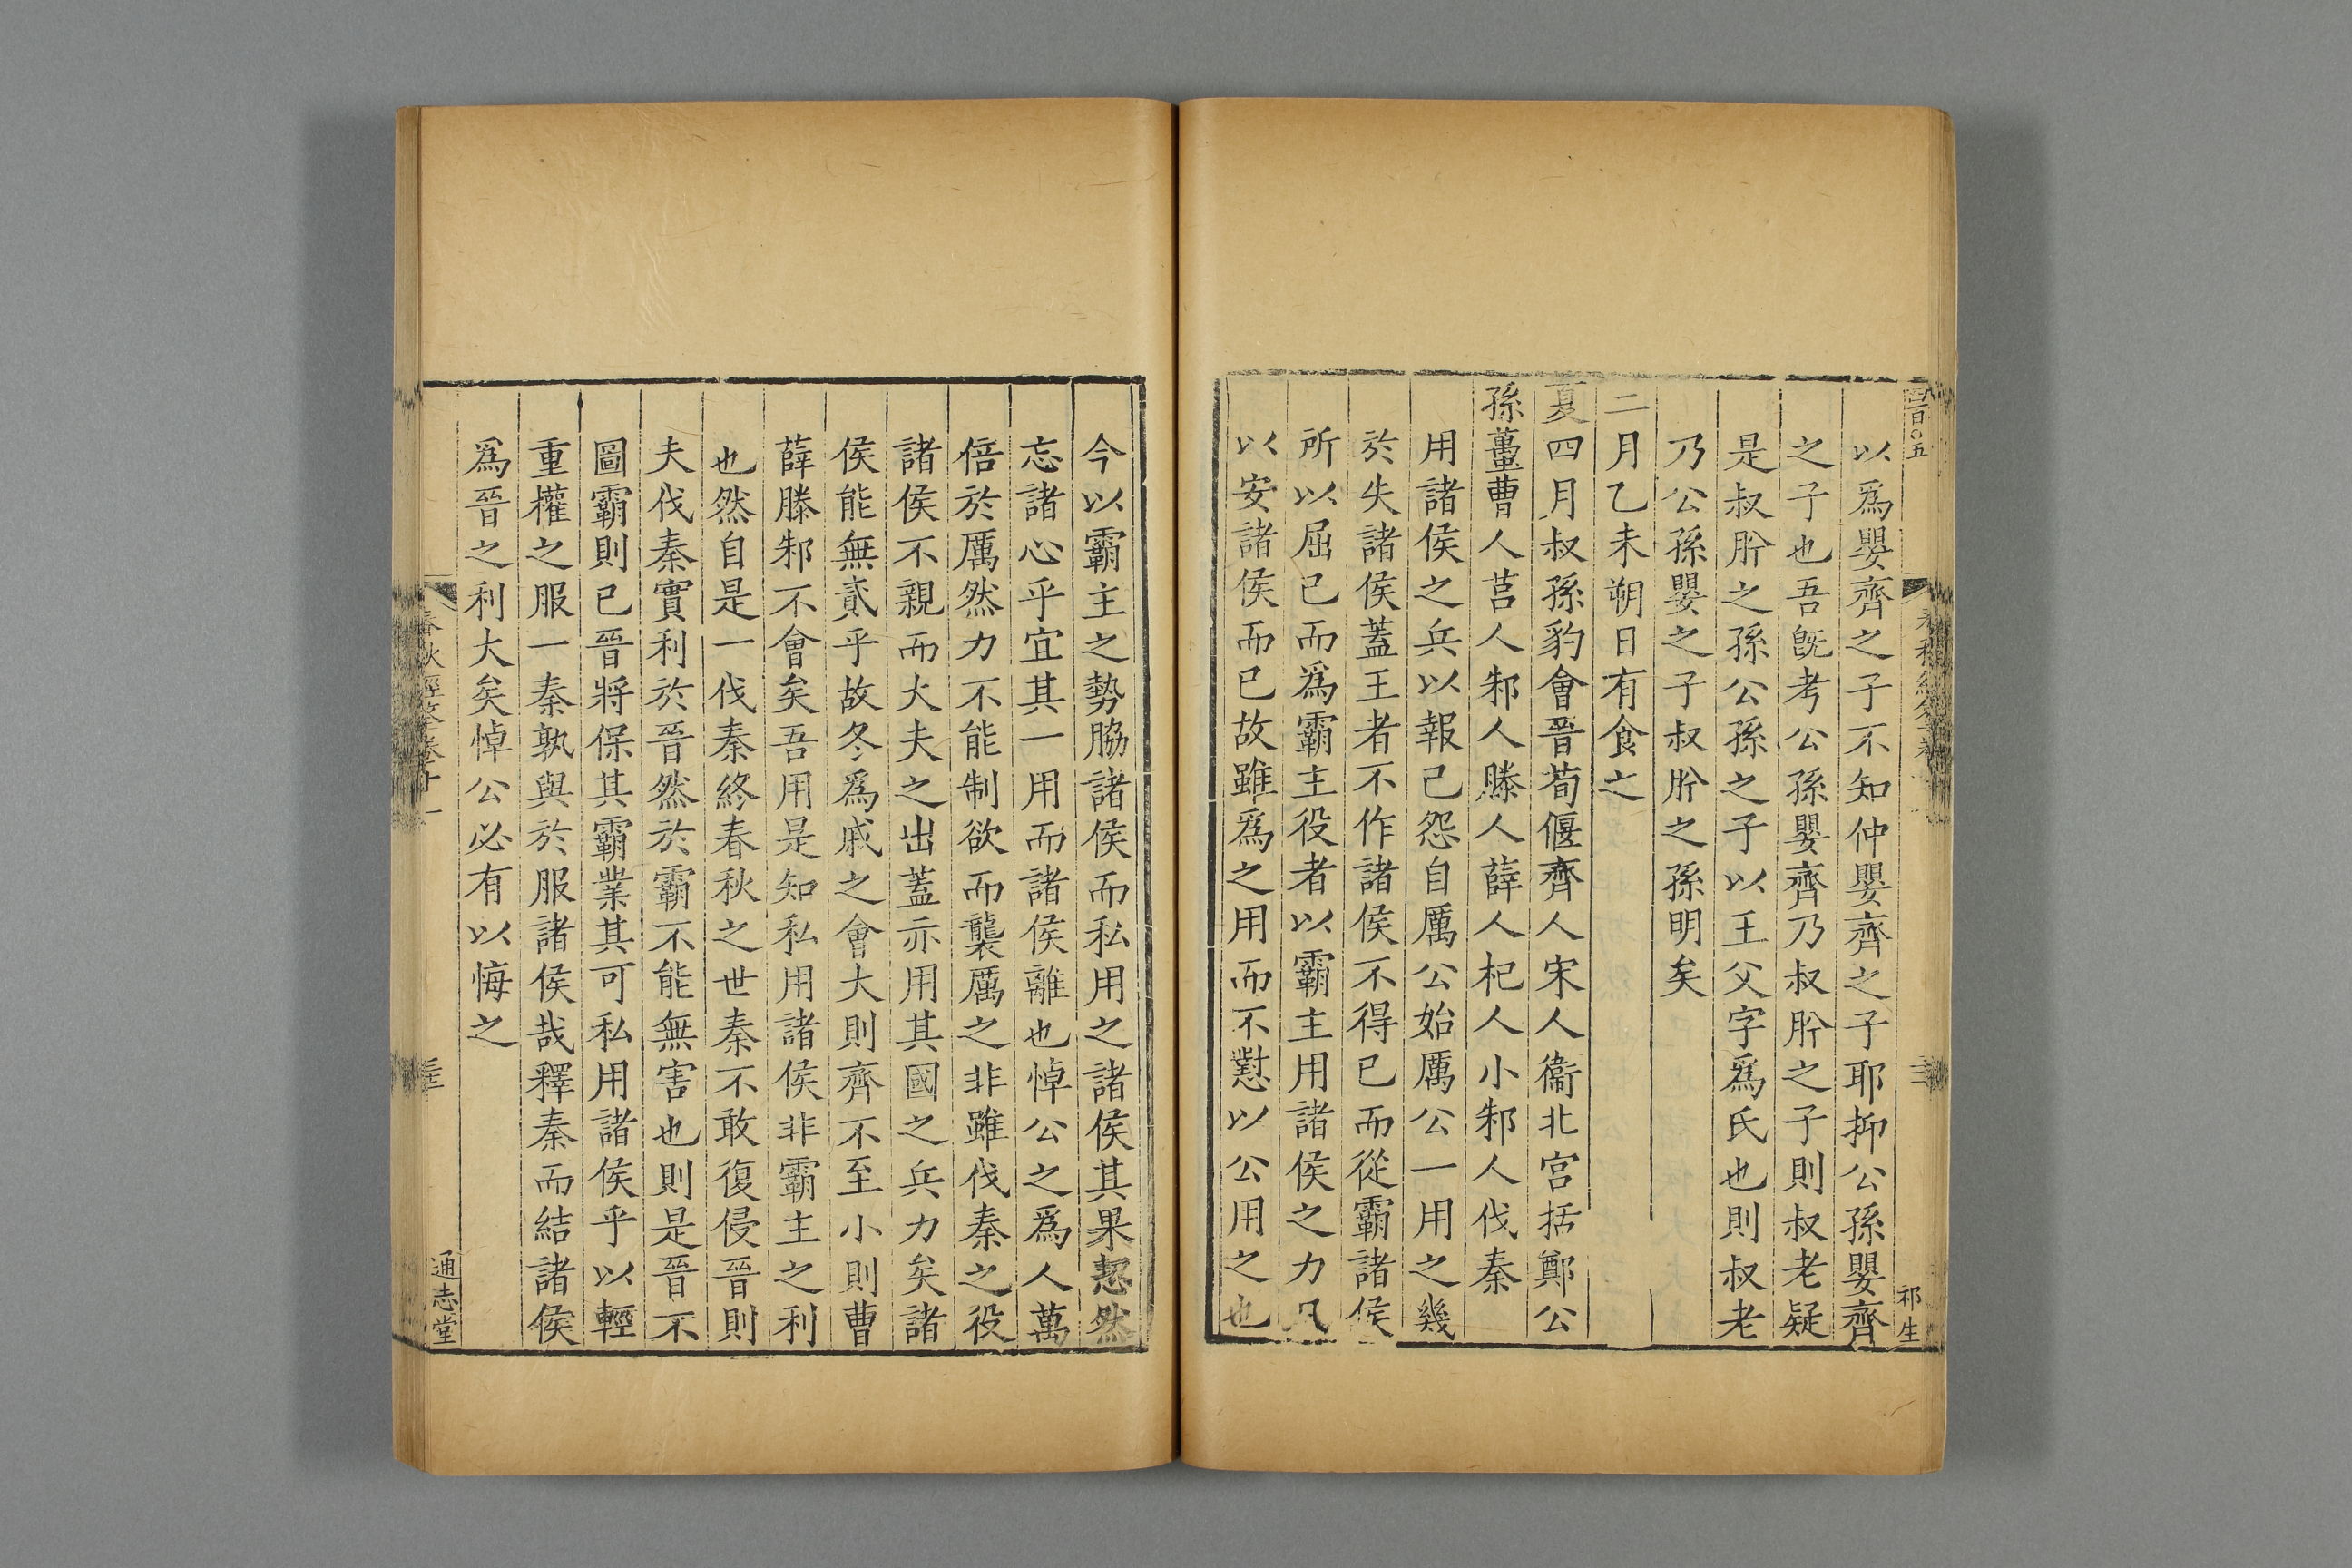 以爲嬰齊之子不知仲嬰齊之子耶抑公孫嬰齊
之子也吾旣考公孫嬰齊乃叔肸之子則叔老疑
是叔肸之孫公孫之子以王父字爲氏也則叔老
乃公孫嬰之子叔肸之孫明矣
二月乙未朔日有食之
夏四月叔孫豹會晉荀偃齊人宋人衞北宮括鄭公
孫蠆曹人莒人邾人滕人薛人杞人小邾人伐秦
用諸侯之兵以報己怨自厲公始厲公一用之幾
於失諸侯蓋王者不作諸侯不得已而從霸諸侯
所以屈己而爲霸主役者以霸主用諸侯之力凡
以安諸侯而已故雖爲之用而不懟以公用之也
祁生
今以霸主之勢脇諸侯而私用之諸侯其果恝然
忘諸心乎宜其一用而諸侯離也悼公之爲人萬
倍於厲然力不能制欲而襲厲之非雖伐秦之役
諸侯不親而大夫之出蓋亦用其國之兵力矣諸
侯能無貳乎故冬爲戚之會大則齊不至小則曹
薛滕邾不會矣吾用是知私用諸侯非霸主之利
也然自是一伐秦終春秋之世秦不敢復侵晉則
夫伐秦實利於晉然於霸不能無害也則是晉不
圖霸則已晉將保其霸業其可私用諸侯乎以輕
重權之服一秦孰與於服諸侯哉釋秦而結諸侯
爲晉之利大矣悼公必有以悔之
春秋經筌卷十一
通志堂